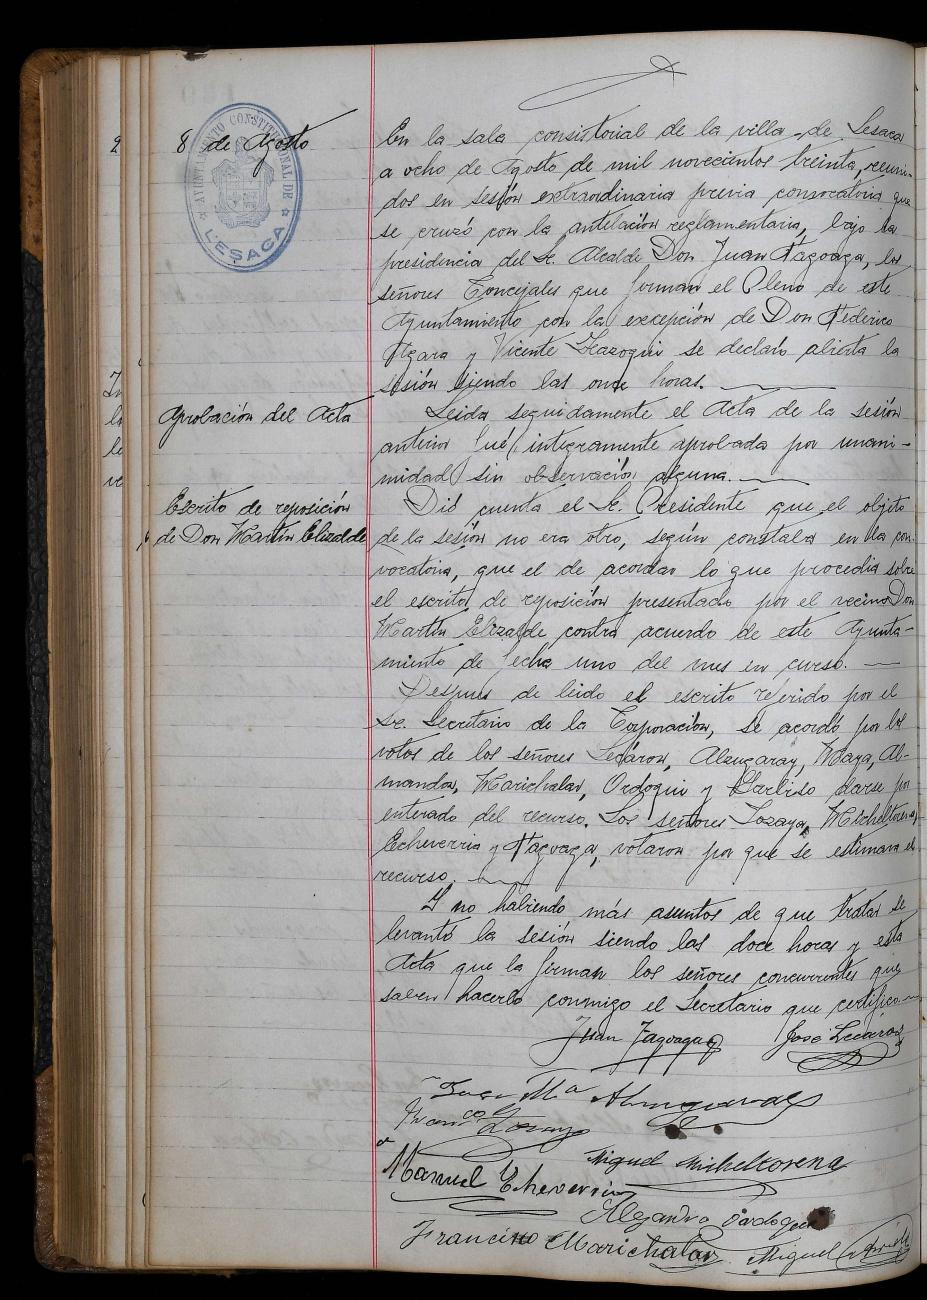 8 de Agosto
AYUNTAMIENTO CONSTITUCIONAL DE
LESACA
En la sala consistorial de la villa de Lesaca
a ocho de Agosto de mil novecientos treinta, reuni-
dos en sesión extraordinaria previa convocatoria que
se cruzó con la antelación reglamentaria, bajo la
presidencia del Sr. Alcalde Don Juan Tagoaga, los
señores Concejales que forman el Pleno de este
Ayuntamiento con la excepción de Don Federico
y Vicente se declaró abierta la
sesión siendo las once horas.
Aprobación del Acta
Leida seguidamente el Acta de la sesión
anterior fué integramente aprobada por unani-
midad sin observación alguna.
Escrito de reposición
de Don Martín Elizalde
Dió cuenta el Sr. Presidente que el objeto
de la sesión no era otro, según constaba en la con-
vocatoria, que el de acordar lo que procedia sobre
el escrito de reposición presentado por el vecino Don
Martín Elizalde contra acuerdo de este Ayunta-
miento de fecha uno del mes en curso.
Despues de leido el escrito referido por el
Sr. Secretario de la Corporación, se acordó por los
votos de los señores Lecároz, Alzugaray, Maya, Al-
mandoz, Marichalar, Ordoqui y Garbiso darse por
enterado del recurso. Los señores Lozaya, Micheltorena,
Echeverria y Tagoaga, votaron por que se estimara el
recurso.
Y no habiendo más asuntos de que tratar se
levantó la sesión siendo las doce horas y esta
Acta que la firman los señores concurrentes que
saben hacerlo conmigo el Secretario que certifico.
Juan Tagoaga José Lecároz
José Mª Alzugaray
Franco Lozaya
Miguel Micheltorena
Manuel Echeverria
Alejandro Ordoqui
Francisco Marichalar Miguel